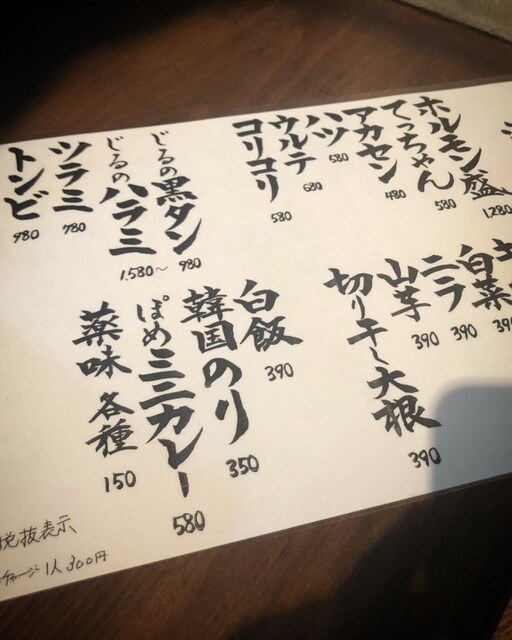 ホルモン盛 1280
てっちゃん 580
アカセン 480
ハツ 580
ウルテ 680
コリコリ 580
じるの黒タン 980
じるのハラミ 1,580〜
ツラミ 780
トンビ 980
白菜 390
ニラ 390
山芋 390
切り干し大根 390
白飯 390
韓国のり 350
ぽめミニカレー 580
薬味 各種 150
税抜表示
チャージ 1人 300円